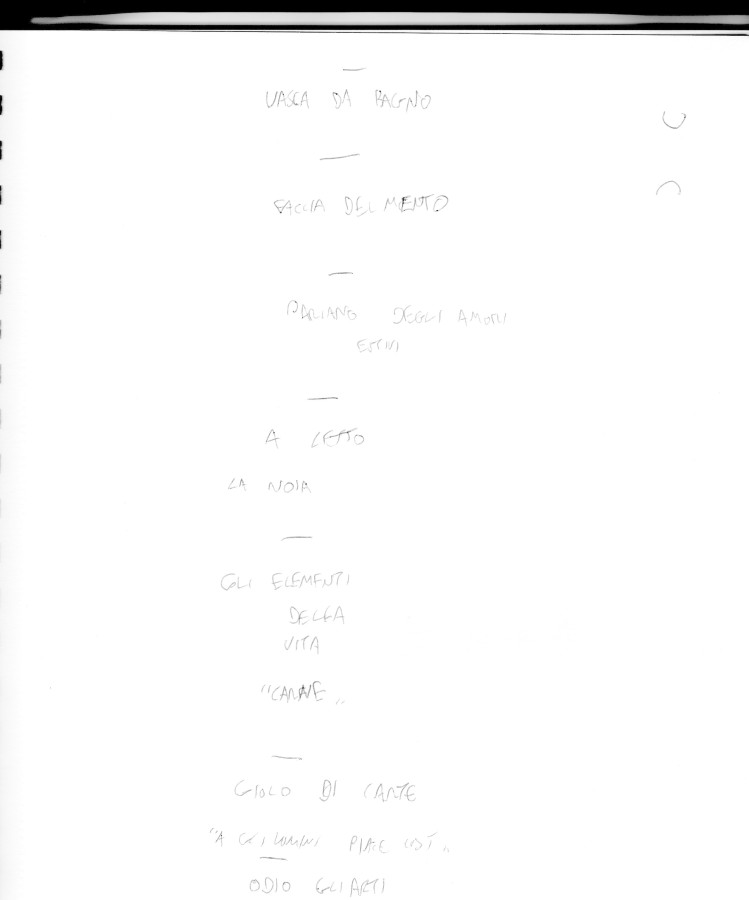 VASCA DA BAGNO
FACCIA DEL MENTO
PARLANO DEGLI AMORI
ESTIVI
A LETTO
LA NOIA
GLI ELEMENTI
DELLA
VITA
"CARNE"
GIOCO DI CARTE
"A GLI UOMINI PIACE COSÌ"
ODIO GLI ARTI